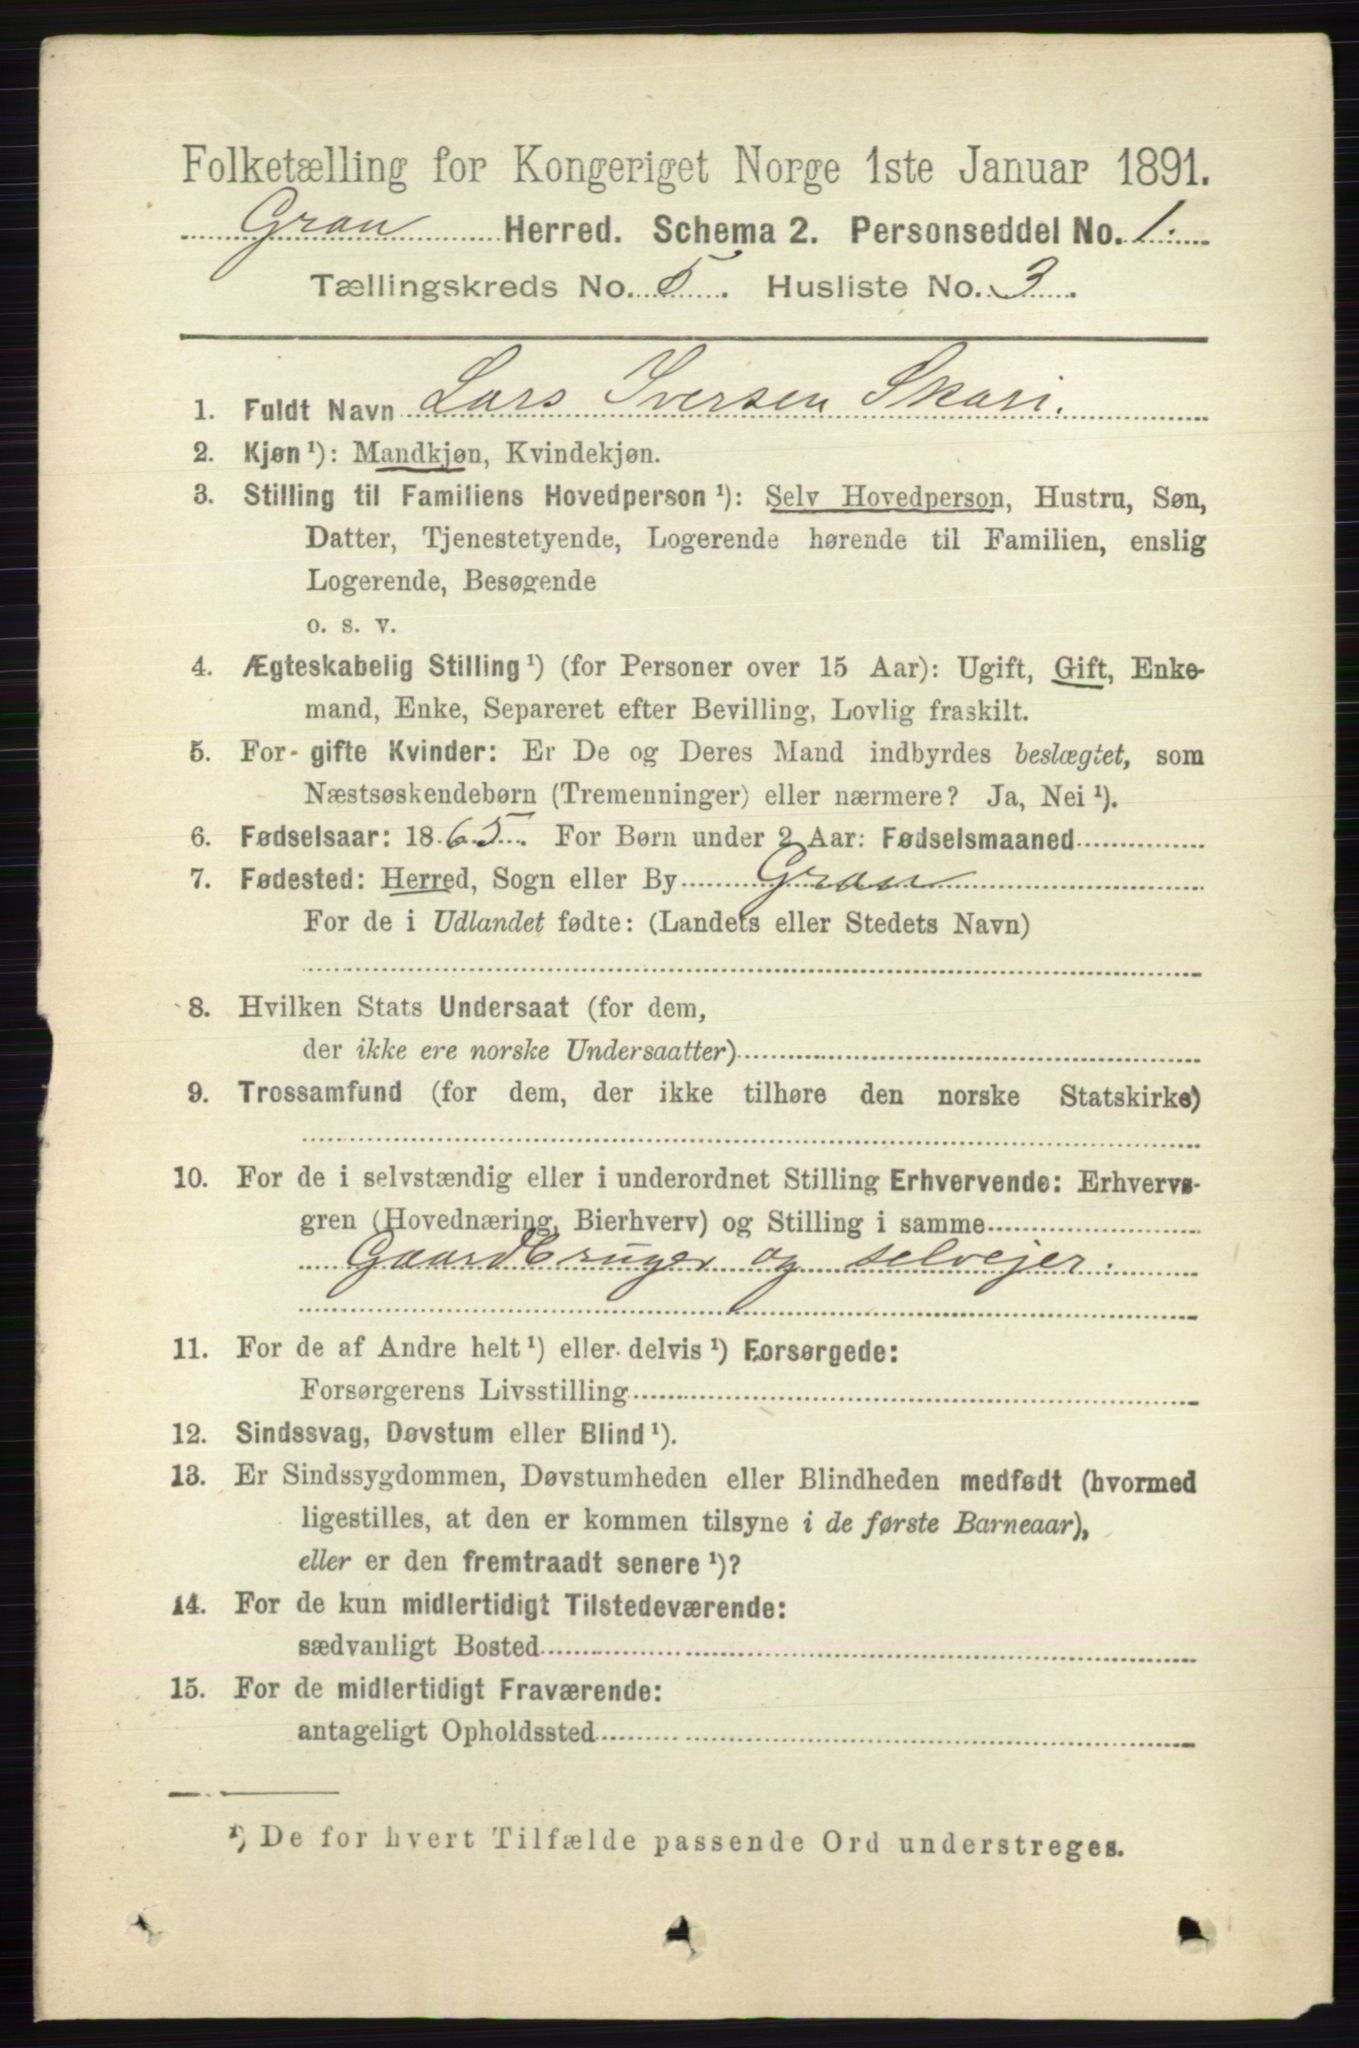 Folketælling for Kongeriget Norge 1ste Januar 1891.
Gran Herred. Schema 2. Personseddel No. 1.
Tællingskreds No. 5. Husliste No. 3.
1. Fuldt Navn Lars Iversen Skari.
2. Kjøn ¹): Mandkjøn, Kvindekjøn.
3. Stilling til Familiens Hovedperson ¹): Selv Hovedperson, Hustru, Søn,
Datter, Tjenestetyende, Logerende hørende til Familien, enslig
Logerende, Besøgende
o. s. v.
4. Ægteskabelig Stilling ¹) (for Personer over 15 Aar): Ugift, Gift, Enke-
mand, Enke, Separeret efter Bevilling, Lovlig fraskilt.
5. For gifte Kvinder: Er De og Deres Mand indbyrdes beslægtet, som
Næstsøskendebørn (Tremenninger) eller nærmere? Ja, Nei ¹).
6. Fødselsaar: 1865. For Børn under 2 Aar: Fødselsmaaned
7. Fødested: Herred, Sogn eller By Gran
For de i Udlandet fødte: (Landets eller Stedets Navn)
8. Hvilken Stats Undersaat (for dem,
der ikke ere norske Undersaatter)
9. Trossamfund (for dem, der ikke tilhøre den norske Statskirke)
10. For de i selvstændig eller i underordnet Stilling Erhvervende: Erhvervs-
gren (Hovednæring, Bierhverv) og Stilling i samme
Gaardbruger og selvejer.
11. For de af Andre helt ¹) eller delvis ¹) Forsørgede:
Forsørgerens Livsstilling
12. Sindssvag, Døvstum eller Blind ¹).
13. Er Sindssygdommen, Døvstumheden eller Blindheden medfødt (hvormed
ligestilles, at den er kommen tilsyne i de første Barneaar),
eller er den fremtraadt senere ¹)?
14. For de kun midlertidigt Tilstedeværende:
sædvanligt Bosted
15. For de midlertidigt Fraværende:
antageligt Opholdssted
¹) De for hvert Tilfælde passende Ord understreges.